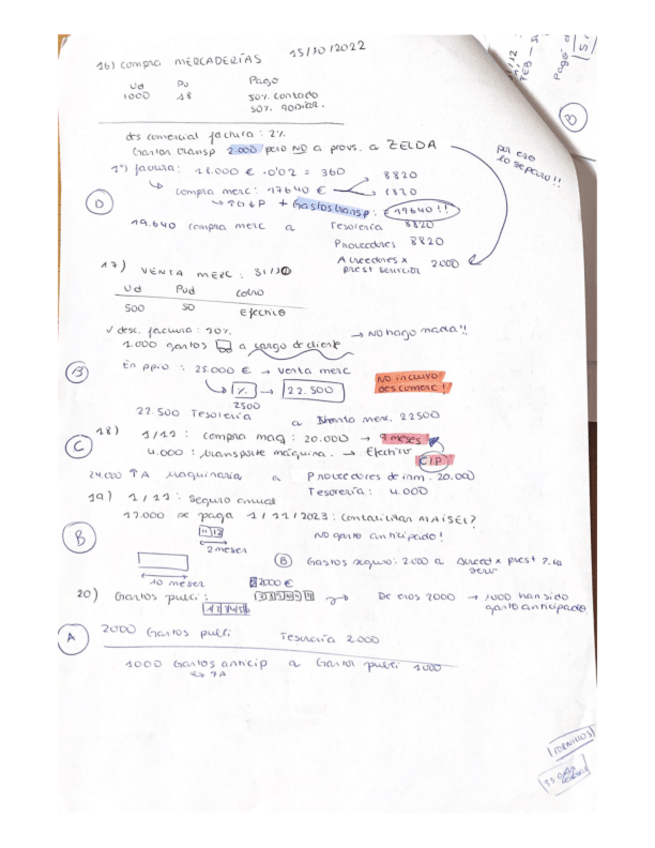 16) compra MERCADERÍAS 15/10/2022
Ud Pu Pago
1000 18 50% contado
50% 90 días.
des comercial factura : 2%
Gastos transp 2.000 pero NO a provs. a ZELDA
por eso lo separo!!
1º) factura: 18.000 € · 0'02 = 360 8820
compra merc: 17640 € 8820
+ Gastos transp: = 19640!!
D
19.640 compra merc a Tesorería 8820
Proveedores 8820
Acreedores x prest servicios 2000
17) VENTA MERC : 31/10
Ud Pud cobro
500 50 Efectivo
✓ desc. factura : 10%
1.000 gastos a cargo de cliente → NO hago nada!!
B
En ppio : 25.000 € → venta merc
% → 22.500
2500
NO incluyo des comerc!
22.500 Tesorería a Venta merc. 22500
18) 1/12 : compra maq : 20.000 → 9 meses
C
4.000 : transporte máquina. → Efectivo
C/P
24.000 ↑A Maquinaria a Proveedores de inm. 20.000
Tesorería : 4.000
19) 1/11 : seguro anual
12.000 se paga 1/11/2023 : contabilizar
11 12
2 meses
NO gasto anticipado!
B
B Gastos seguro: 2.000 a Acreed x prest serv
10 meses
2000 €
20) Gastos publi :
De esos 2000 → 1000 han sido gasto anticipado
A
2000 Gastos publi Tesorería 2.000
1000 Gastos anticip a Gastos publi 1000
↳ ↑A